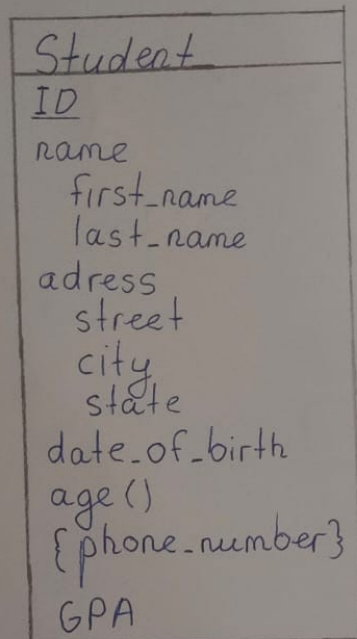 Student
ID
name
first_name
last_name
adress
street
city
state
date_of_birth
age()
{phone_number}
GPA